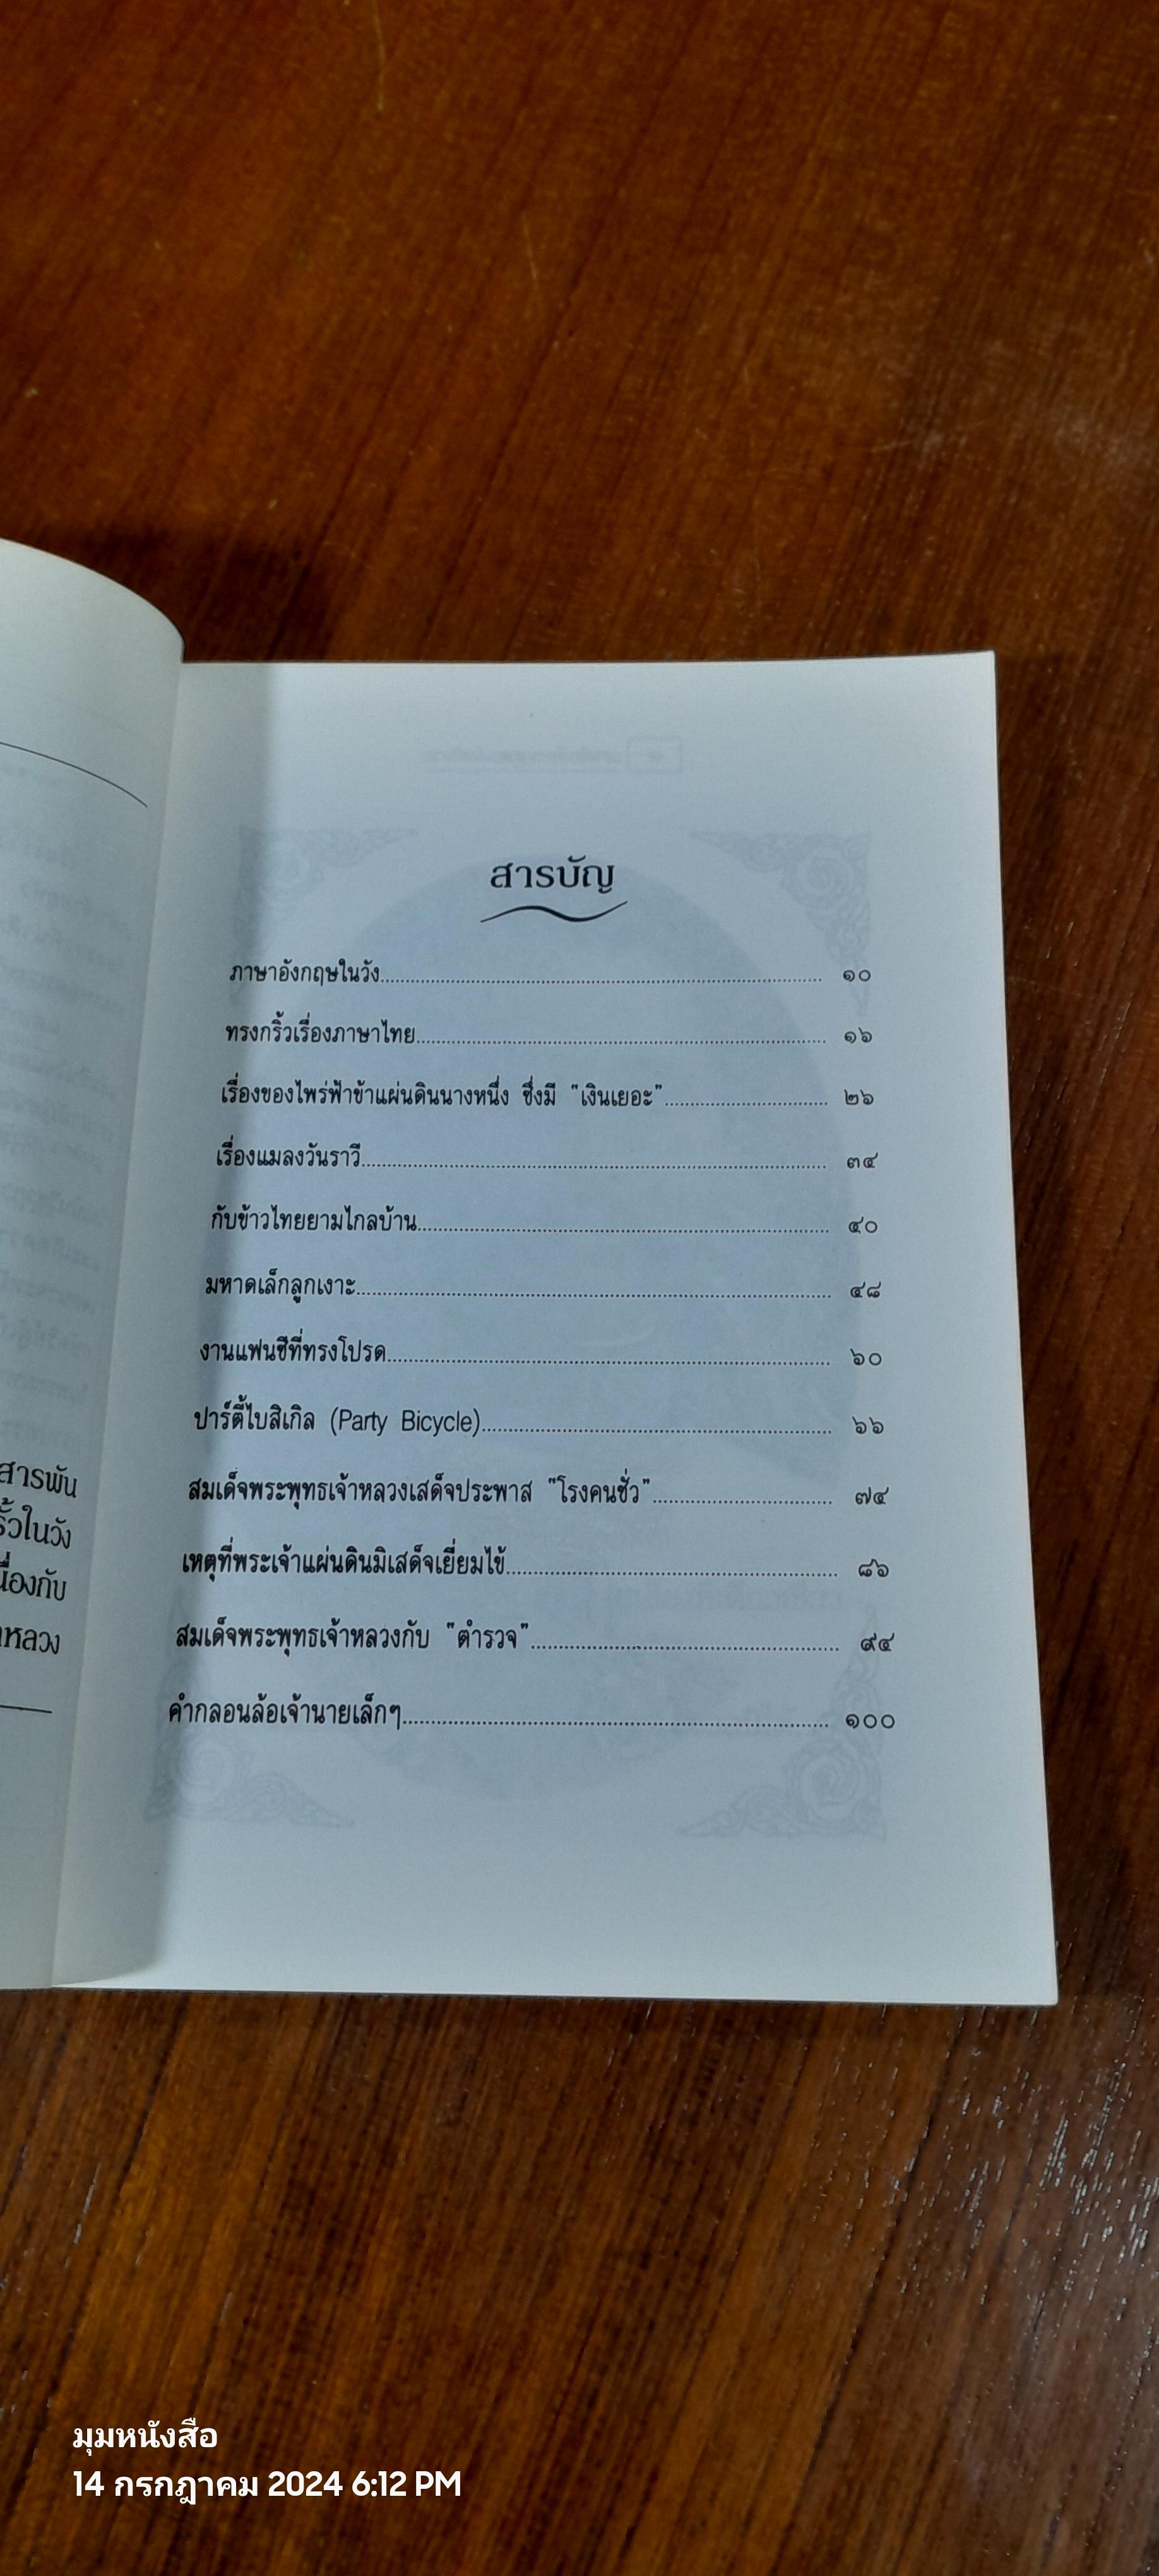 สารพัน
รั้วในวัง
นื่องกับ
หลวง
สารบัญ
ภาษาอังกฤษในวัง ๑๐
ทรงกริ้วเรื่องภาษาไทย ๑๖
เรื่องของไพร่ฟ้าข้าแผ่นดินนางหนึ่ง ซึ่งมี "เงินเยอะ" ๒๖
เรื่องแมลงวันราวี ๓๔
กับข้าวไทยยามไกลบ้าน ๔๐
มหาดเล็กลูกเงาะ ๔๘
งานแฟนซีที่ทรงโปรด ๖๐
ปาร์ตี้ไบสิเกิล (Party Bicycle) ๖๖
สมเด็จพระพุทธเจ้าหลวงเสด็จประพาส "โรงคนชั่ว" ๗๔
เหตุที่พระเจ้าแผ่นดินมิเสด็จเยี่ยมไข้ ๘๖
สมเด็จพระพุทธเจ้าหลวงกับ "ตำรวจ" ๙๔
คำกลอนล้อเจ้านายเล็กๆ ๑๐๐
มุมหนังสือ
14 กรกฎาคม 2024 6:12 PM